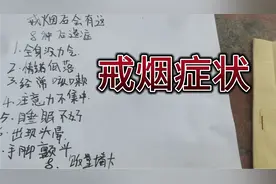 戒烟后会有这
8种后遗症
1.全身没力气
2.情绪低落
3.经常咳嗽
4.注意力不集中
5.睡眠不好
6.出现头晕
7.手脚颤斗
8.饭量增大
戒烟症状